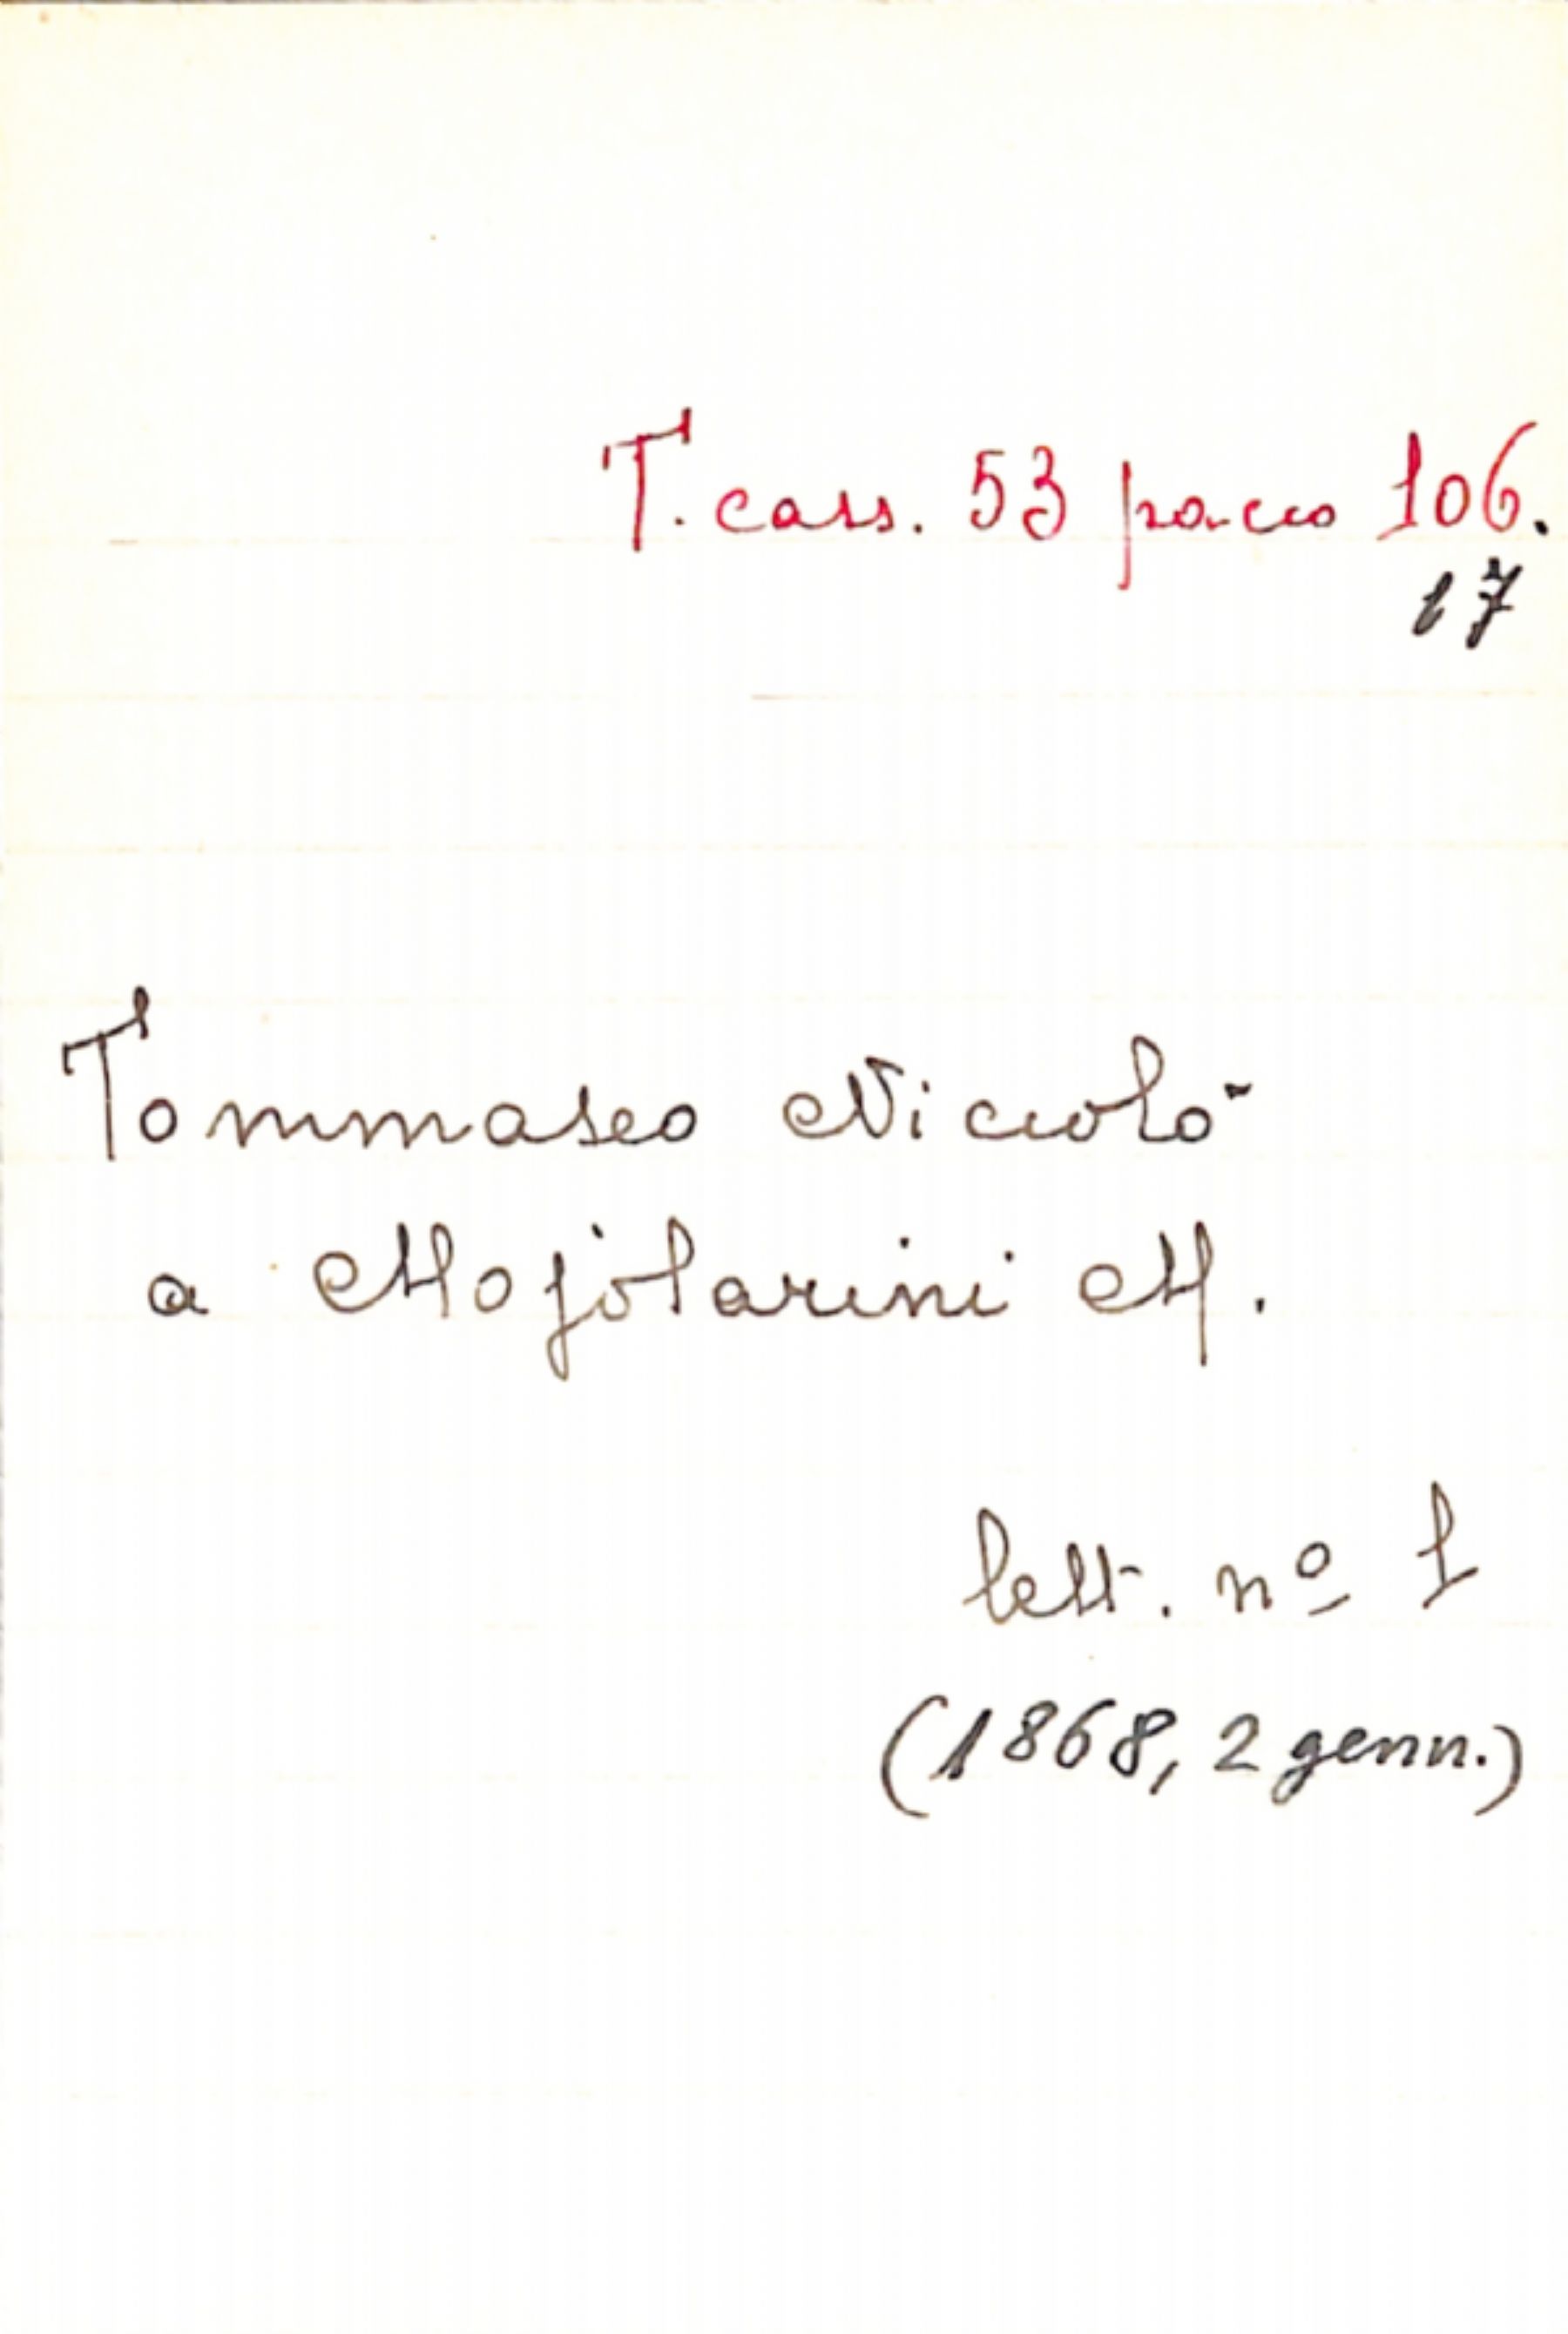 T. cass. 53 pacco 106.
17
Tommaseo Niccolò
a Mojolarini M.
lett. nº 1
(1868, 2 genn.)